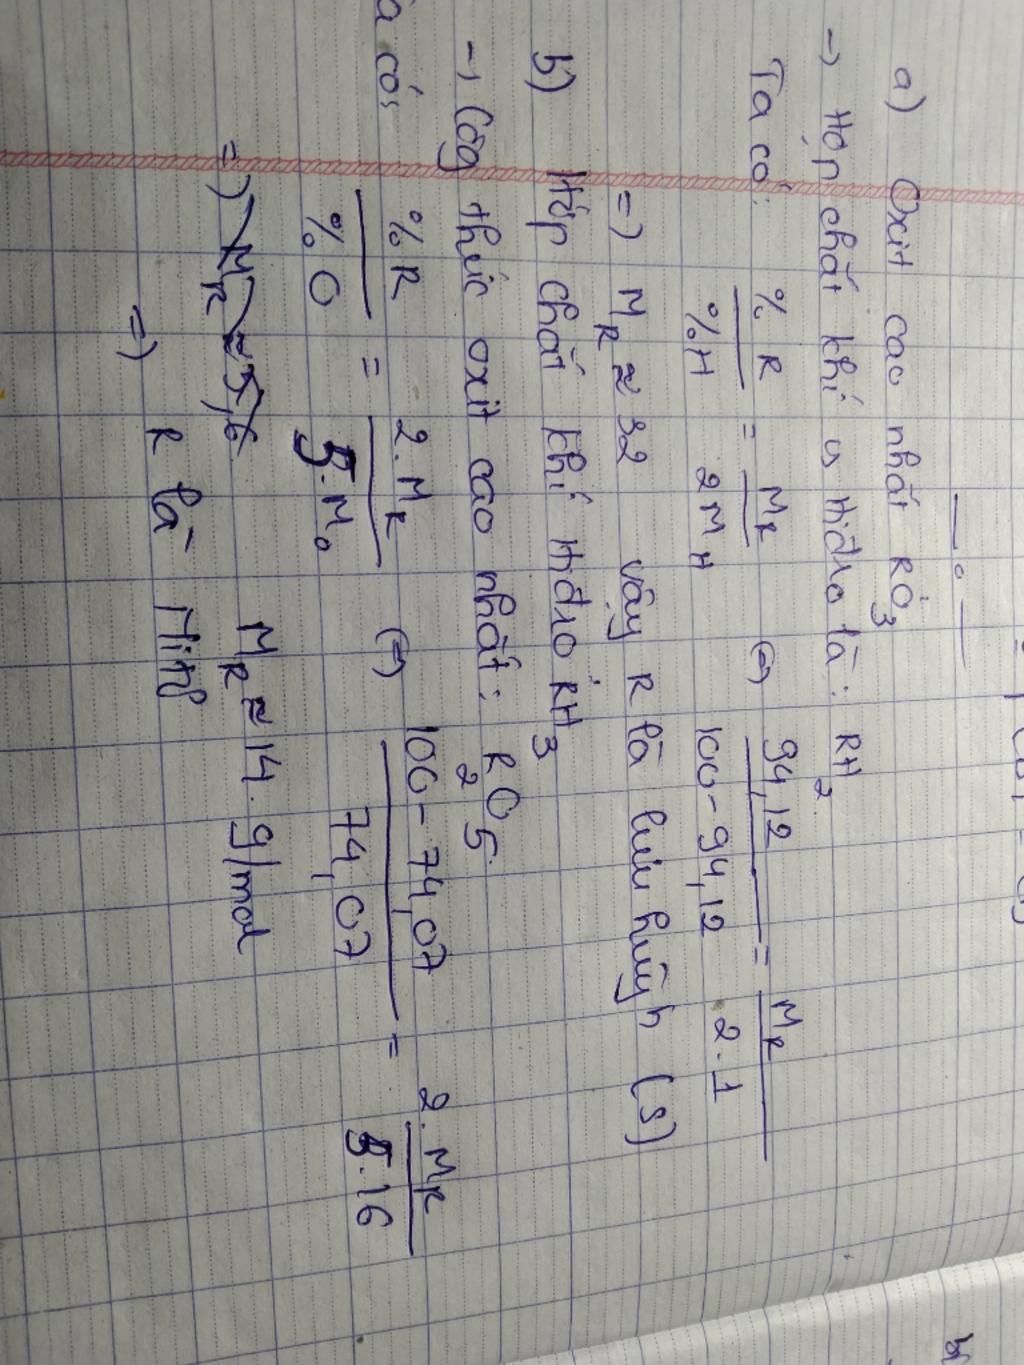 a) Oxit cao nhất RO3
→ Hợp chất khí vs Hiđro là: RH2
Ta có: %R / %H = MR / 2MH (=) 94,12 / 100-94,12 = MR / 2.1
=) MR ≈ 32 vậy R là lưu huỳnh (S)
b) Hợp chất khí Hiđro RH3
→ Công thức oxit cao nhất: R2O5
a có: %R / %O = 2.MR / 5.MO (=) 100-74,07 / 74,07 = 2.MR / 5.16
=) MR ≈ 5,6 MR ≈ 14 g/mol
=) R là Nitơ